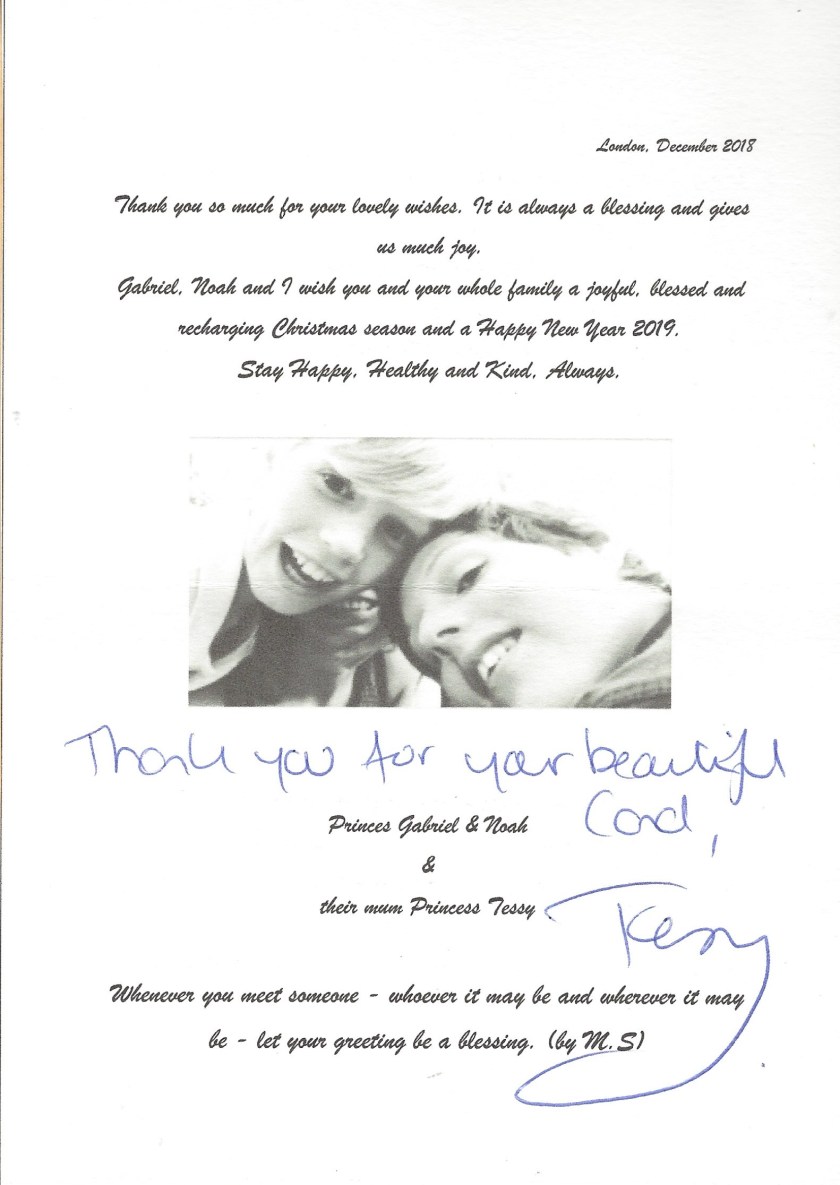 London, December 2018
Thank you so much for your lovely wishes. It is always a blessing and gives
us much joy.
Gabriel, Noah and I wish you and your whole family a joyful, blessed and
recharging Christmas season and a Happy New Year 2019.
Stay Happy, Healthy and Kind. Always.
Thank you for your beautiful
Card,
Princes Gabriel & Noah
&
their mum Princess Tessy
Tessy
Whenever you meet someone - whoever it may be and wherever it may
be - let your greeting be a blessing. (by M.S)